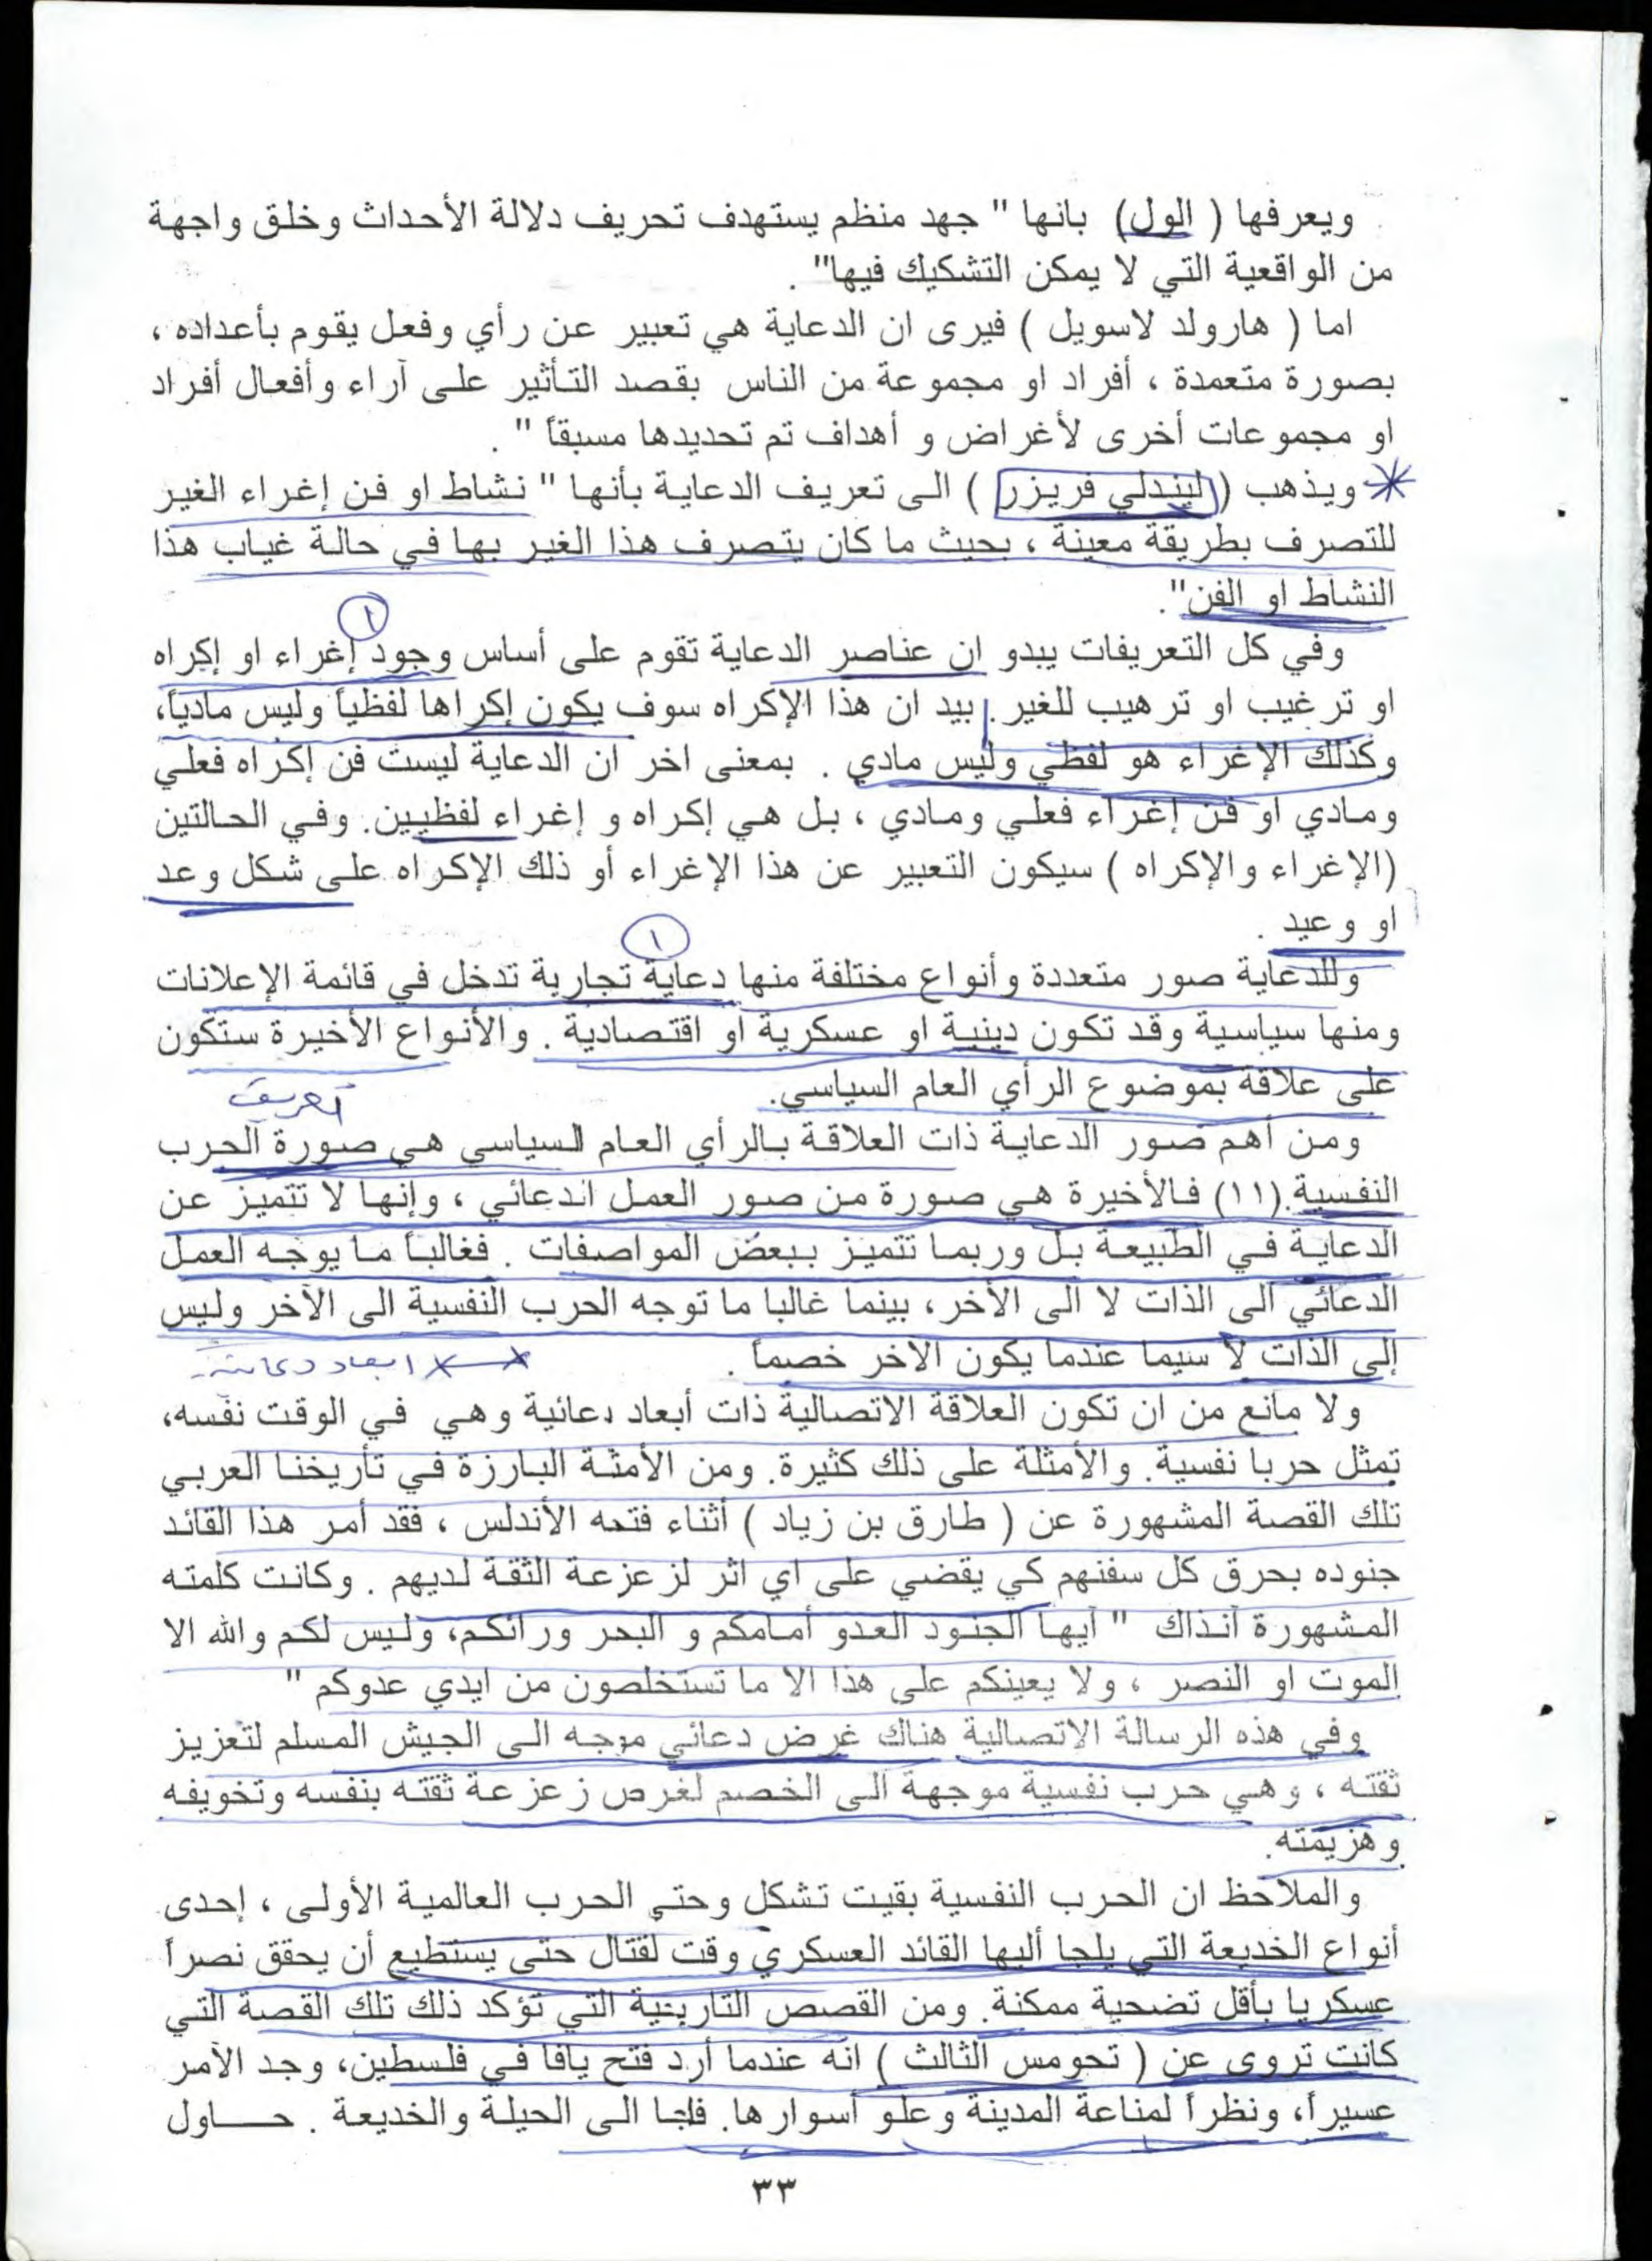 ويعرفها ( الول) بانها " جهد منظم يستهدف تحريف دلالة الأحداث وخلق واجهة
من الواقعية التي لا يمكن التشكيك فيها".
اما ( هارولد لاسويل ) فيرى ان الدعاية هي تعبير عن رأي وفعل يقوم بأعداده ،
بصورة متعمدة ، أفراد او مجموعة من الناس بقصد التأثير على آراء وأفعال أفراد
او مجموعات أخرى لأغراض و أهداف تم تحديدها مسبقاً " .
ويذهب ( ليندلي فريزر ) الى تعريف الدعاية بأنها " نشاط او فن إغراء الغير
للتصرف بطريقة معينة ، بحيث ما كان يتصرف هذا الغير بها في حالة غياب هذا
النشاط او الفن".
١
وفي كل التعريفات يبدو ان عناصر الدعاية تقوم على أساس وجود إغراء او إكراه
او ترغيب او ترهيب للغير. بيد ان هذا الإكراه سوف يكون إكراها لفظياً وليس مادياً،
وكذلك الإغراء هو لفظي وليس مادي . بمعنى اخر ان الدعاية ليست فن إكراه فعلي
ومادي او فن إغراء فعلي ومادي ، بل هي إكراه و إغراء لفظيين. وفي الحالتين
(الإغراء والإكراه ) سيكون التعبير عن هذا الإغراء أو ذلك الإكراه على شكل وعد
او وعيد .
١
وللدعاية صور متعددة وأنواع مختلفة منها دعاية تجارية تدخل في قائمة الإعلانات
ومنها سياسية وقد تكون دينية او عسكرية او اقتصادية . والأنواع الأخيرة ستكون
على علاقة بموضوع الرأي العام السياسي.
تعريف
ومن أهم صور الدعاية ذات العلاقة بالرأي العام السياسي هي صورة الحرب
النفسية .(١١) فالأخيرة هي صورة من صور العمل الدعائي ، وإنها لا تتميز عن
الدعاية في الطبيعة بل وربما تتميز ببعض المواصفات . فغالباً ما يوجه العمل
الدعائي الى الذات لا الى الأخر ، بينما غالبا ما توجه الحرب النفسية الى الآخر وليس
إلى الذات لا سيما عندما يكون الاخر خصماً .
ابعاد دعائية
ولا مانع من ان تكون العلاقة الاتصالية ذات أبعاد دعائية وهي في الوقت نفسه،
تمثل حربا نفسية. والأمثلة على ذلك كثيرة. ومن الأمثة البارزة في تأريخنا العربي
تلك القصة المشهورة عن ( طارق بن زياد ) أثناء فتحه الأندلس ، فقد أمر هذا القائد
جنوده بحرق كل سفنهم كي يقضي على اي اثر لزعزعة الثقة لديهم . وكانت كلمته
المشهورة آنذاك " ايها الجنود العدو أمامكم و البحر ورائكم، وليس لكم والله الا
الموت او النصر ، ولا يعينكم على هذا الا ما تستخلصون من ايدي عدوكم "
وفي هذه الرسالة الاتصالية هناك غرض دعائي موجه الى الجيش المسلم لتعزيز
ثقته ، وهي حرب نفسية موجهة الى الخصم لغرض زعزعة ثقته بنفسه وتخويفه
وهزيمته.
والملاحظ ان الحرب النفسية بقيت تشكل وحتى الحرب العالمية الأولى ، إحدى
أنواع الخديعة التي يلجا أليها القائد العسكري وقت لقتال حتى يستطيع أن يحقق نصراً
عسكريا بأقل تضحية ممكنة. ومن القصص التاريخية التي تؤكد ذلك تلك القصة التي
كانت تروى عن ( تحومس الثالث ) انه عندما أرد فتح يافا في فلسطين، وجد الأمر
عسيراً، ونظراً لمناعة المدينة وعلو أسوارها. فلجا الى الحيلة والخديعة . حـــاول
٣٣